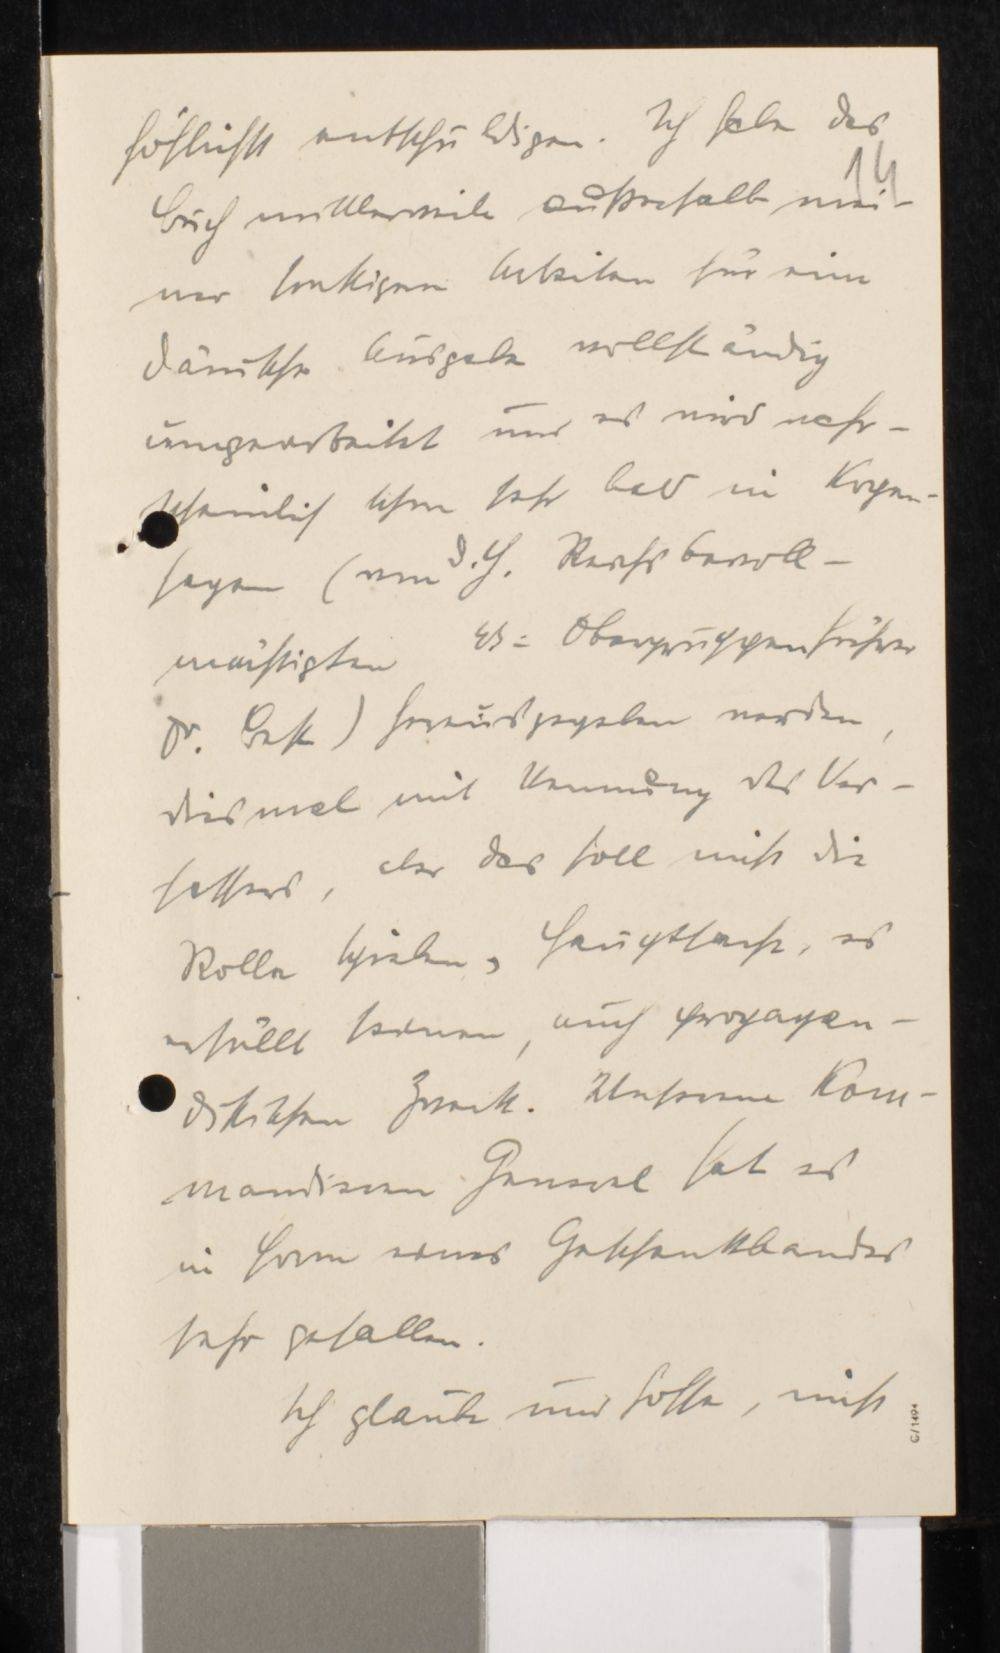 höflichst entschuldigen. Ich habe das
14
Buch mittlerweile außerhalb mei-
ner sonstigen Arbeiten für eine
dänische Ausgabe vollständig
umgearbeitet und es wird wahr-
scheinlich schon sehr bald in Kopen-
hagen (vom d. H. Reichsbevoll-
mächtigten SS-Obergruppenführer
Dr. Best) herausgegeben werden,
diesmal mit Nennung des Ver-
fassers, aber das soll nicht die
Rolle spielen, Hauptsache, es
erfüllt seinen, auch propagan-
distischen Zweck. Unserem Kom-
mandieren General hat es
in Form eines Geschenkbandes
sehr gefallen.
Ich glaube und hoffe, nicht
G/1494